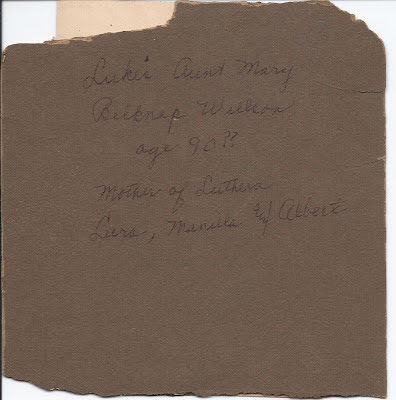 Luke's Aunt Mary
Belknap Willson
age 90??
Mother of Luthera
Lura, Manella & Albert